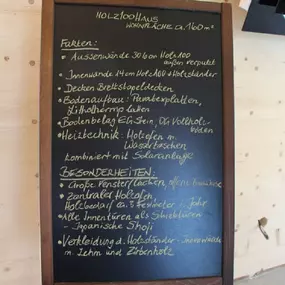 HOLZ100HAUS
WOHNFLÄCHE ca. 160 m²
FAKTEN:
• Aussenwände 30 cm Holz100
außen verputzt
• Innenwände 14 cm Holz100 + Holzständer
• Decken Brettstapeldecken
• Bodenaufbau: Parabexplatten,
Lithothermplatten
• Bodenbelag Eli.Stein, DG Vollholz-
böden
• Heiztechnik: Holzofen m.
Wassertaschen
kombiniert mit Solaranlage
BESONDERHEITEN:
• Große Fensterflächen, offene Bauweise
• Zentraler Holzofen,
Holzbedarf ca. 5 Festmeter Jahr
• Alle Innentüren als Schiebetüren
- Japanische Shoji
• Verkleidung d. Holzständer - Innenwände
m. Lehm und Zirbenholz